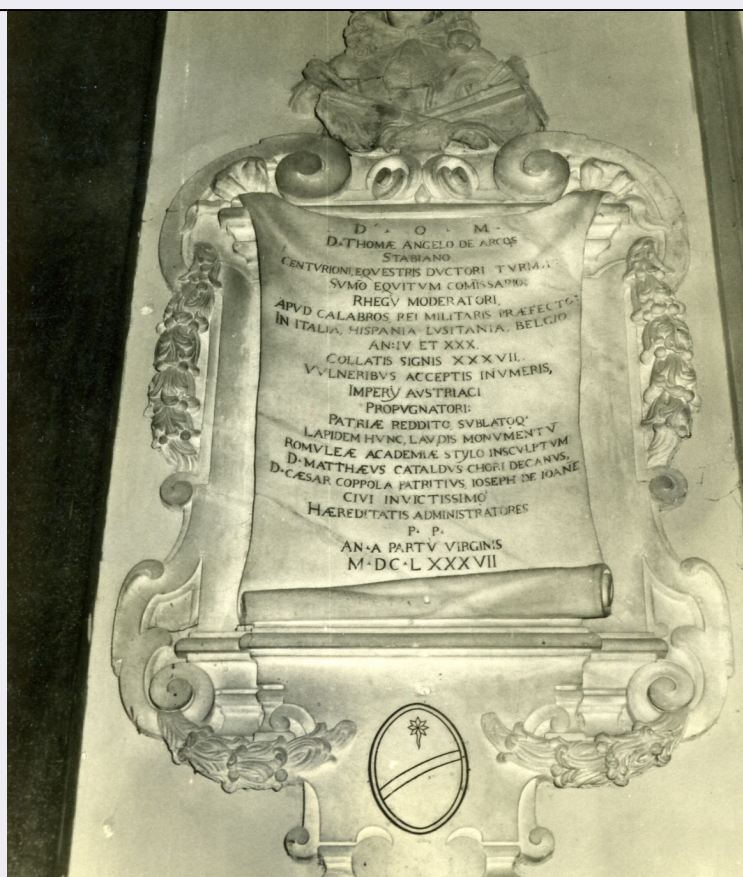 D · O · M ·
D· THOMÆ ANGELO DE ARCOS
STABIANO
CENTVRIONI, EQVESTRIS DVCTORI TVRMÆ
SVMO EQVITVM COMISSARIO;
RHEGY MODERATORI,
APVD CALABROS, REI MILITARIS PRÆFECTO;
IN ITALIA, HISPANIA LVSITANIA, BELGIO
AN: IV ET XXX.
COLLATIS SIGNIS XXXVII.
VVLNERIBVS ACCEPTIS INVMERIS,
IMPERY AVSTRIACI
PROPVGNATORI:
PATRIÆ REDDITO, SVBLATOQ·
LAPIDEM HVNC, LAVDIS MONVMENTV
ROMVLEÆ ACADEMIÆ STYLO INSCVLPTVM
D· MATTHÆVS CATALDVS CHORI DECANVS,
D· CÆSAR COPPOLA PATRITIVS, IOSEPH DE IOANE
CIVI INVICTISSIMO
HÆREDITATIS ADMINISTRATORES
P· P·
AN· A PARTV VIRGINIS
M· DC· LXXXVII